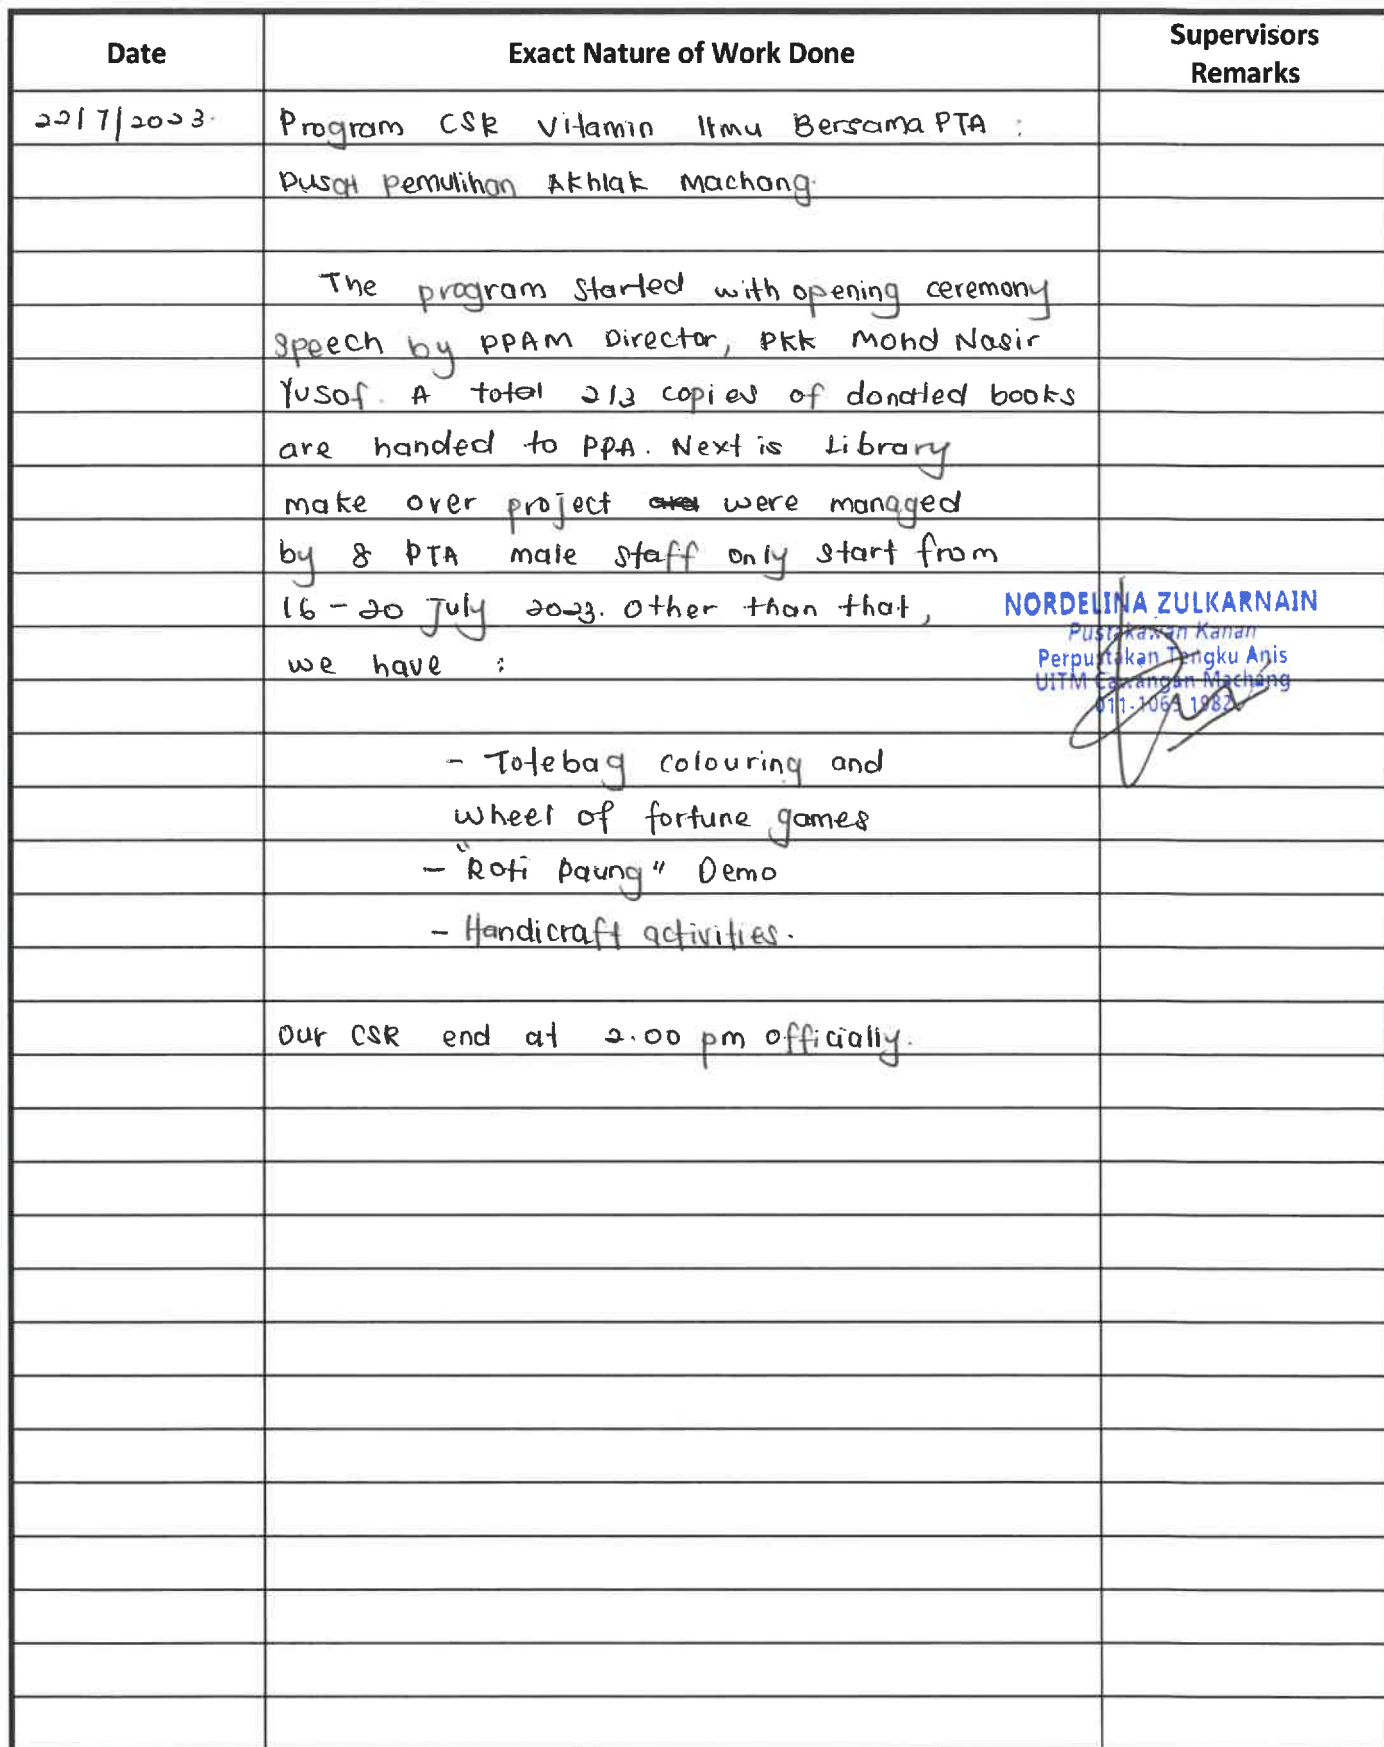 Date
Exact Nature of Work Done
Supervisors
Remarks
22/7/2023.
Program CSR Vitamin Ilmu Bersama PTA :
Pusat Pemulihan Akhlak Machang.
The program started with opening ceremony
speech by PPAM Director, PKK Mohd Nasir
Yusof. A total 213 copies of donated books
are handed to PPA. Next is Library
make over project were managed
by 8 PTA male staff only start from
16 - 20 July 2023. Other than that,
we have :
- Totebag colouring and
wheel of fortune games
- "Roti Paung" Demo
- Handicraft activities.
Our CSR end at 2.00 pm officially.
NORDELINA ZULKARNAIN
Pustakawan Kanan
Perpustakan Tengku Anis
UITM Cawangan Machang
011-1063 1982